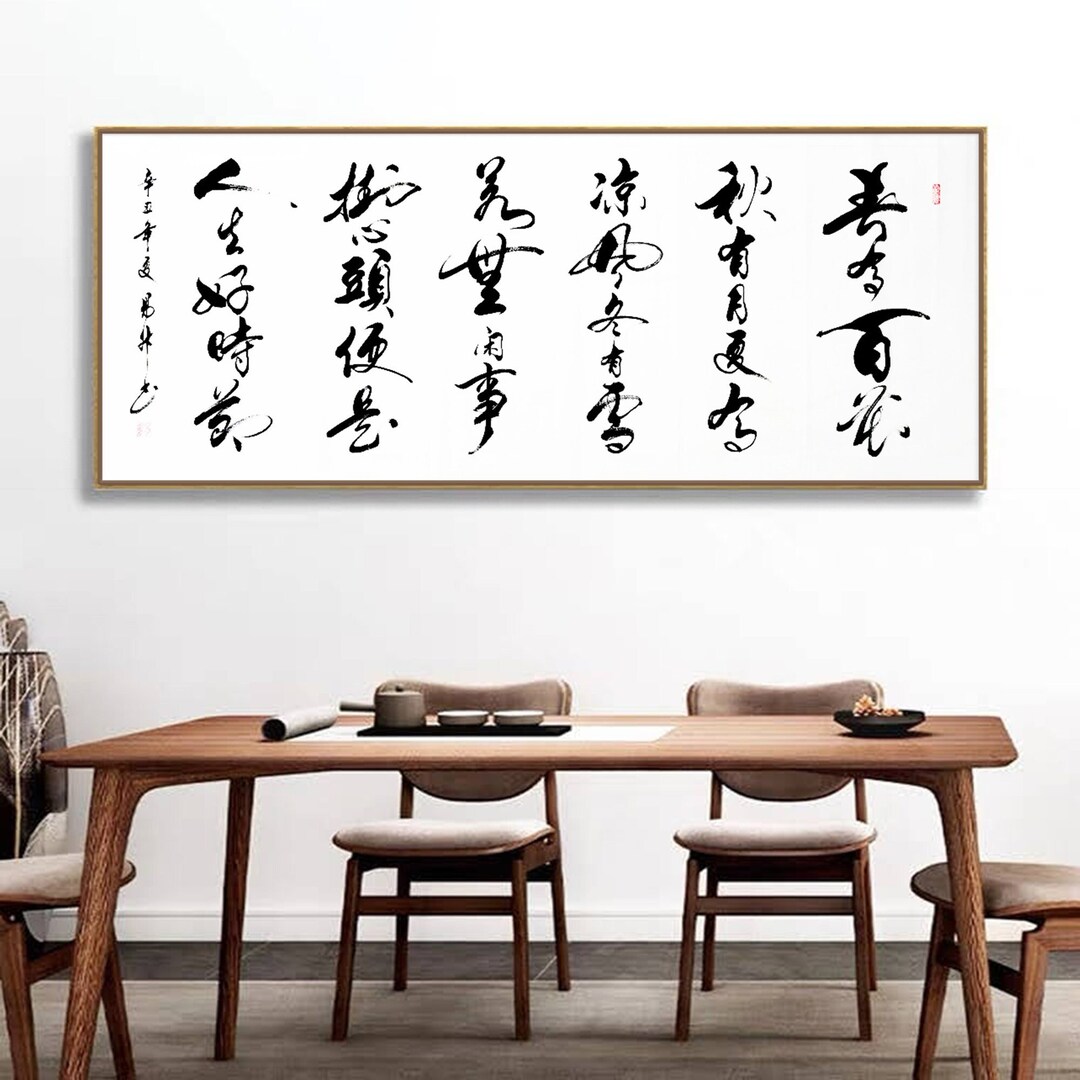 春有百花
秋有月夏有
凉風冬有雪
若無闲事
掛心頭便是
人生好時節
辛丑年夏 易